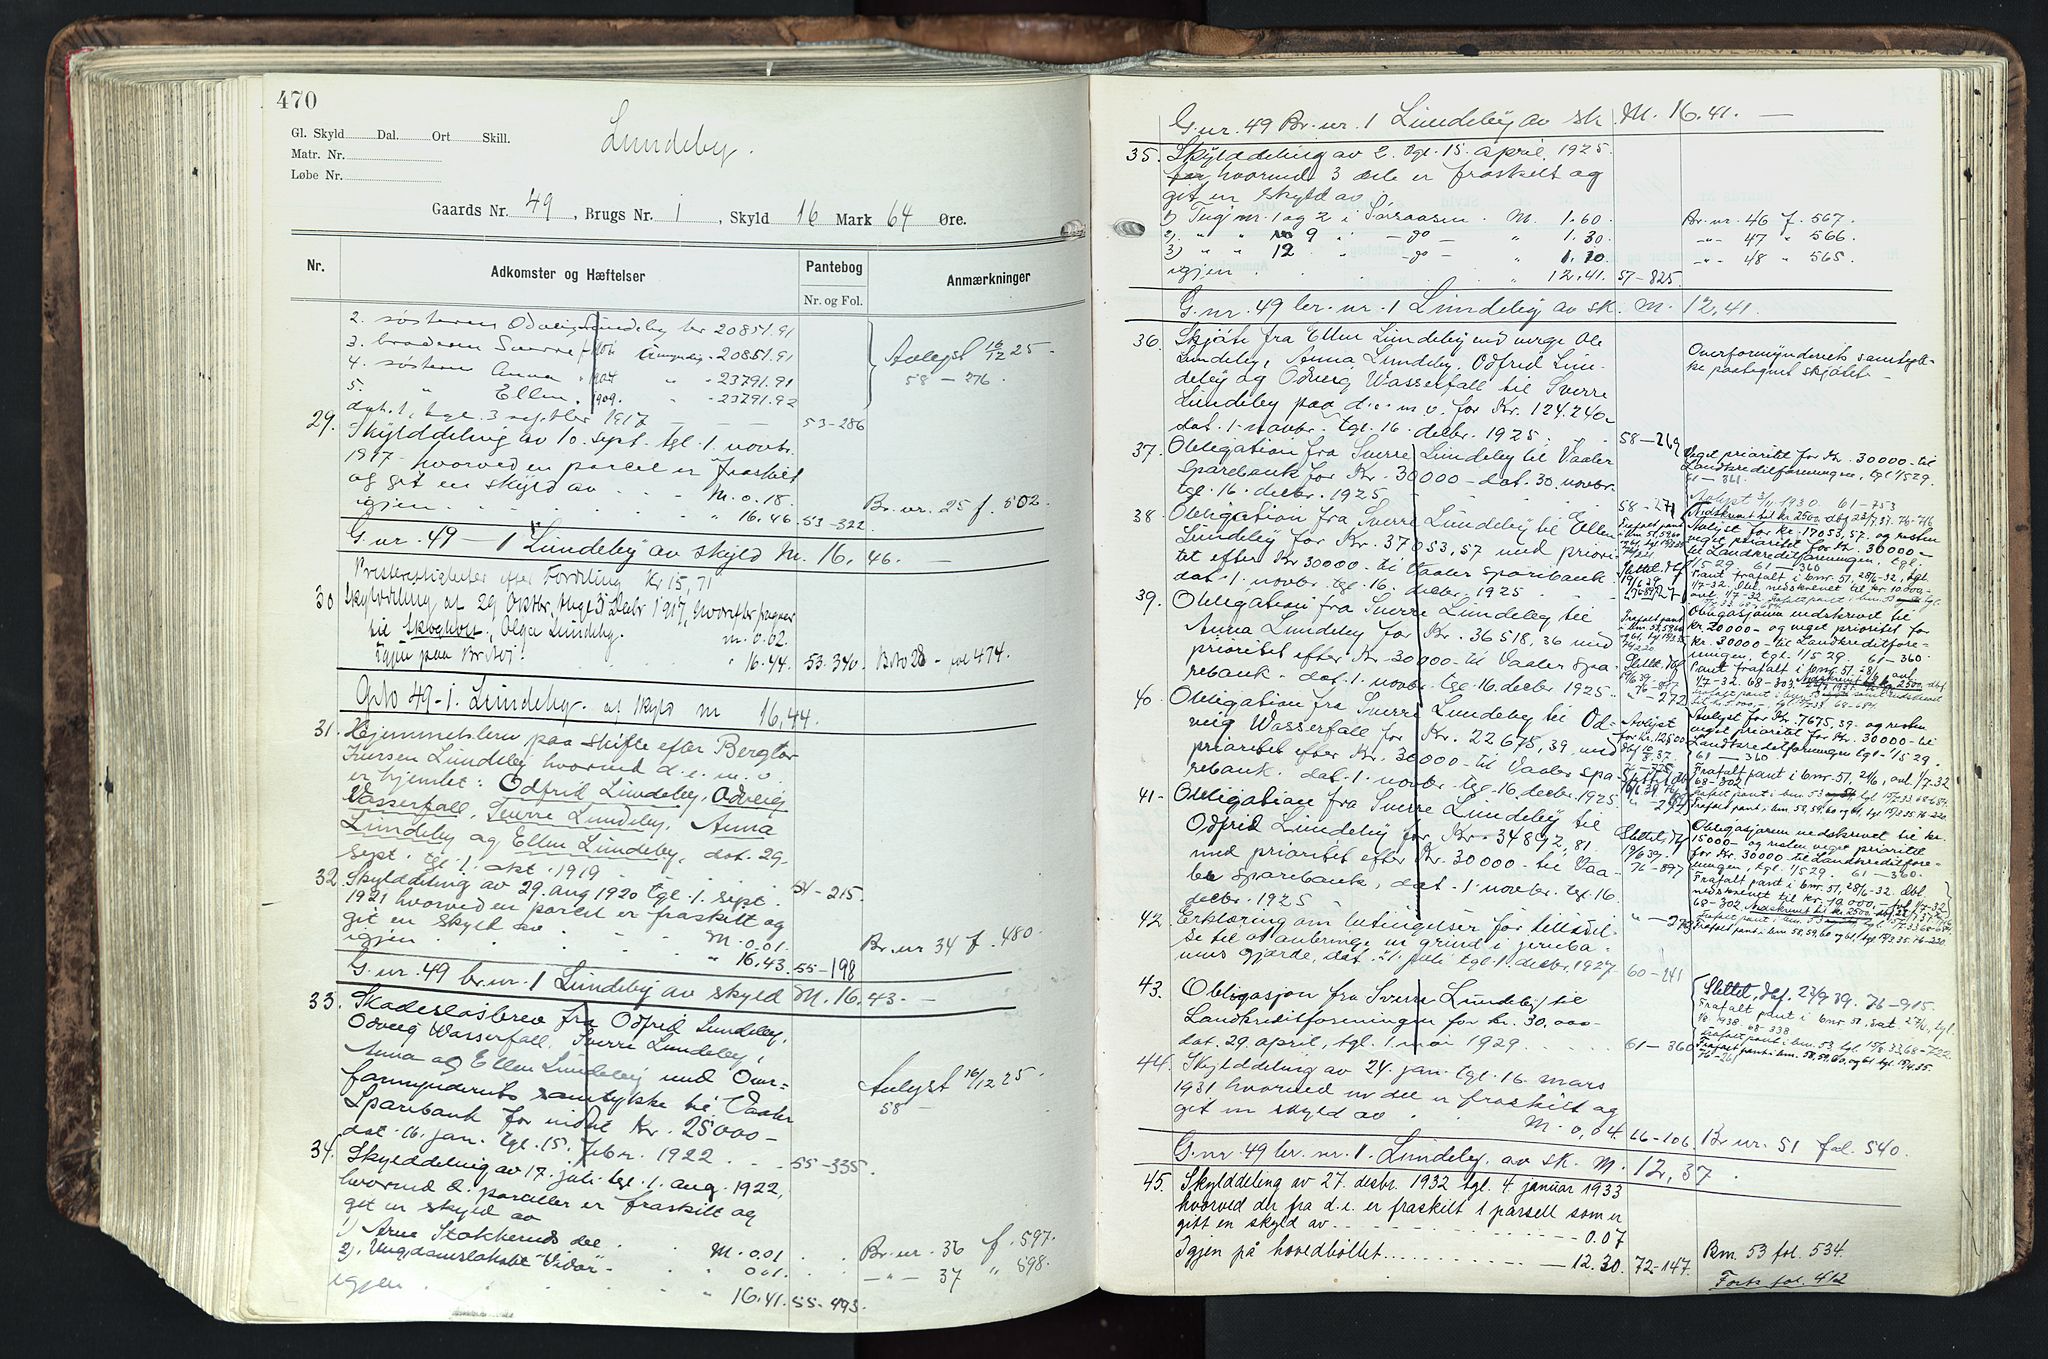 470
Gl. Skyld Dal. Ort Skill.
Matr. Nr.
Løbe Nr.
Lundeby.
Gaards Nr. 49, Brugs Nr. 1, Skyld 16 Mark 64 Øre.
Nr. Adkomster og Hæftelser Pantebog Anmærkninger
Nr. og Fol.
2. søsteren Odveig Lundeby kr 20851.91
3. broderen Sverre f. 20851.91
4. søsteren Anna " 1904 " - 23791.91 Avlyst 16/12 25.
5. " Ellen " 1909. " - 23791.92 58 — 276
dat. 1, tgl. 3 septbr 1917 — — — 53-286
29. Skylddeling av 10. sept. tgl. 1. novbr.
1917 hvorved en parcel er fraskilt
og git en skyld av . . M. 0.18. Br. nr. 25 f. 502.
igjen . . . . " 16.46 53-322
G. nr. 49 — 1 Lundeby av skyld M. 16.46. —
Presterettigheter efter Fordeling Kr 15,71
30 Skylddeling af 29 Oktbr, tingl 3 Decbr 1917, hvorefter
til Skogholt, Olga Lundeby. m. 0.02.
Igjen paa Br No 1. " 16.44. 53.340 B No 28 - fol 474.
G No 49-1. Lundeby. af Skyld m 16,44.
31. Hjemmelsbrev paa skifte efter Berglov
Iversen Lundeby hvorved d. e. m. v.
er hjemlet: Odfrid Lundeby, Odveig
Wasserfall, Sverre Lundeby, Anna
Lundeby og Ellen Lundeby, dat. 29.
sept. tgl. 1. okt. 1919 54-215.
32. Skylddeling av 29. aug 1920 tgl. 1. sept.
1921 hvorved en parcel er fraskilt og
git en skyld av . . M. 0.01. Br. nr 34 f. 480.
igjen . . . " 16.43. 55-198
G. nr. 49 br. nr. 1 Lundeby av skyld M. 16.43. —
33. Skadesløsbrev fra Odfrid Lundeby,
Odveig Wasserfall, Sverre Lundeby,
Anna og Ellen Lundeby med Over-
formynderiets samtykke til Vaaler Avlyst 16/12 25.
Sparebank for indtil Kr. 25000— 58 —
dat. 16. jan. tgl. 15. febr. 1922 . . 55-335.
34. Skylddeling av 17. juli tgl. 1. aug. 1922,
hvorved 2. parceller er fraskilt og
git en skyld av
1) Arne Stokkeruds del . . M. 0.01 . . Br. nr. 36 f. 597.
2) Ungdomslokalet "Vidar" " 0.01. . . —"— 37 " 598.
igjen . . . . " 16.41. 55-493.
G. nr. 49 Br. nr. 1 Lundeby av sk. M. 16.41. —
35. Skylddeling av 2. tgl. 15. april. 1925.
hvorved 3 dele er fraskilt og
git en skyld av
1) Teig nr. 1 og 2 i Søraasen . M. 1.60. Br. nr. 46 f. 567.
2) " " 9 " — do — " 1.30. —"— 47 " 566.
3) " " 12 " — do — " 1.10. —"— 48 " 565.
igjen . . " 12.41. 57-825.
G. nr. 49 br. nr. 1 Lundeby av sk. M. 12.41.
36. Skjøte fra Ellen Lundeby med verge Ole
Lundeby, Anna Lundeby, Odfrid Lun- Overformynderiets samtyk-
deby og Odveig Wasserfall til Sverre ke paategnet skjøtet. —
Lundeby paa d. e. m. v. for Kr. 124.240—
dat. 1. novbr. tgl. 16. decbr. 1925. . 58—269
37. Obligation fra Sverre Lundeby til Vaaler Veget prioritet for Kr. 30000— til
Sparebank for Kr. 30000— dat. 30. novbr. Landkreditforeningen, tgl 1/5 29.
tgl. 16. decbr. 1925 58-271 61 — 361.
Avlyst 3/ 1930. 61-753
38. Obligation fra Sverre Lundeby til Ellen
Lundeby for Kr. 37053,57 med priori- Avlyst for kr. 17053,57. og resten
tet efter Kr 30000— til Vaaler sparebank. veget prioritet for Kr. 30000—
dat. 1. novbr. tgl. 16. decbr. 1925 . . til Landkreditforeningen, tgl.
1/5 29 61—360
39. Obligation fra Sverre Lundeby til
Anna Lundeby for Kr. 36518,36 med Obligasjonen nedskrevet til
prioritet efter Kr. 30000— til Vaaler Spa- kr. 20000— og veget prioritet for
rebank. dat. 1. novbr. tgl. 16. decbr. 1925 . kr. 30000— til Landkreditfore-
ningen, tgl. 1/5 29 61—360.
40. Obligation fra Sverre Lundeby til Od-
veig Wasserfall for Kr. 22675,39 med Avlyst for Kr. 7675.39. og resten
prioritet efter Kr. 30000— til Vaaler Spa- veget prioritet for Kr. 30000— til
rebank. dat. 1. novbr. tgl. 16. decbr. 1925. Landkreditforeningen tgl. 1/5 29.
61 — 360
41. Obligation fra Sverre Lundeby til
Odfrid Lundeby for Kr. 34892,81. Slettet, dbf Obligasjonen nedskrevet til kr.
med prioritet efter Kr. 30000— til Vaa- 19/6 39. 15000— og resten veget prioritet
ler sparebank, dat. 1. novbr. tgl. 16. 76-897 for Kr. 30000— til Landkreditfore-
decbr. 1925 ningen, tgl. 1/5 29. 61—360.
42. Erklæring om betingelser for tilladel-
se til at anbringe en grind i jernba-
nens gjærde, dat. 21 juli tgl. 1. decbr. 1927. 60-241
43. Obligasjon fra Sverre Lundeby til Slettet, dbf. 23/9 39. 76-915.
Landkreditforeningen for kr. 30.000—
dat. 29. april, tgl. 1. mai 1929 . . . 61-360
44. Skylddeling av 24. jan. tgl. 16. mars
1931 hvorved en del er fraskilt og
git en skyld av . . M. 0,04. 66-106 Br. nr. 51 fol. 540.
G. nr. 49 br. nr. 1. Lundeby. av sk. M. 12,37.
45. Skylddeling av 27. desbr. 1932 tgl. 4. januar 1933
hvorved der fra d. e. er fraskilt 1 parsell som er
gitt en skyld av . . . . 0.07
Igjen på hovedbøllet . . . — 12.30. 72-147. Bnr. 53 fol. 534.
Forts fol. 412